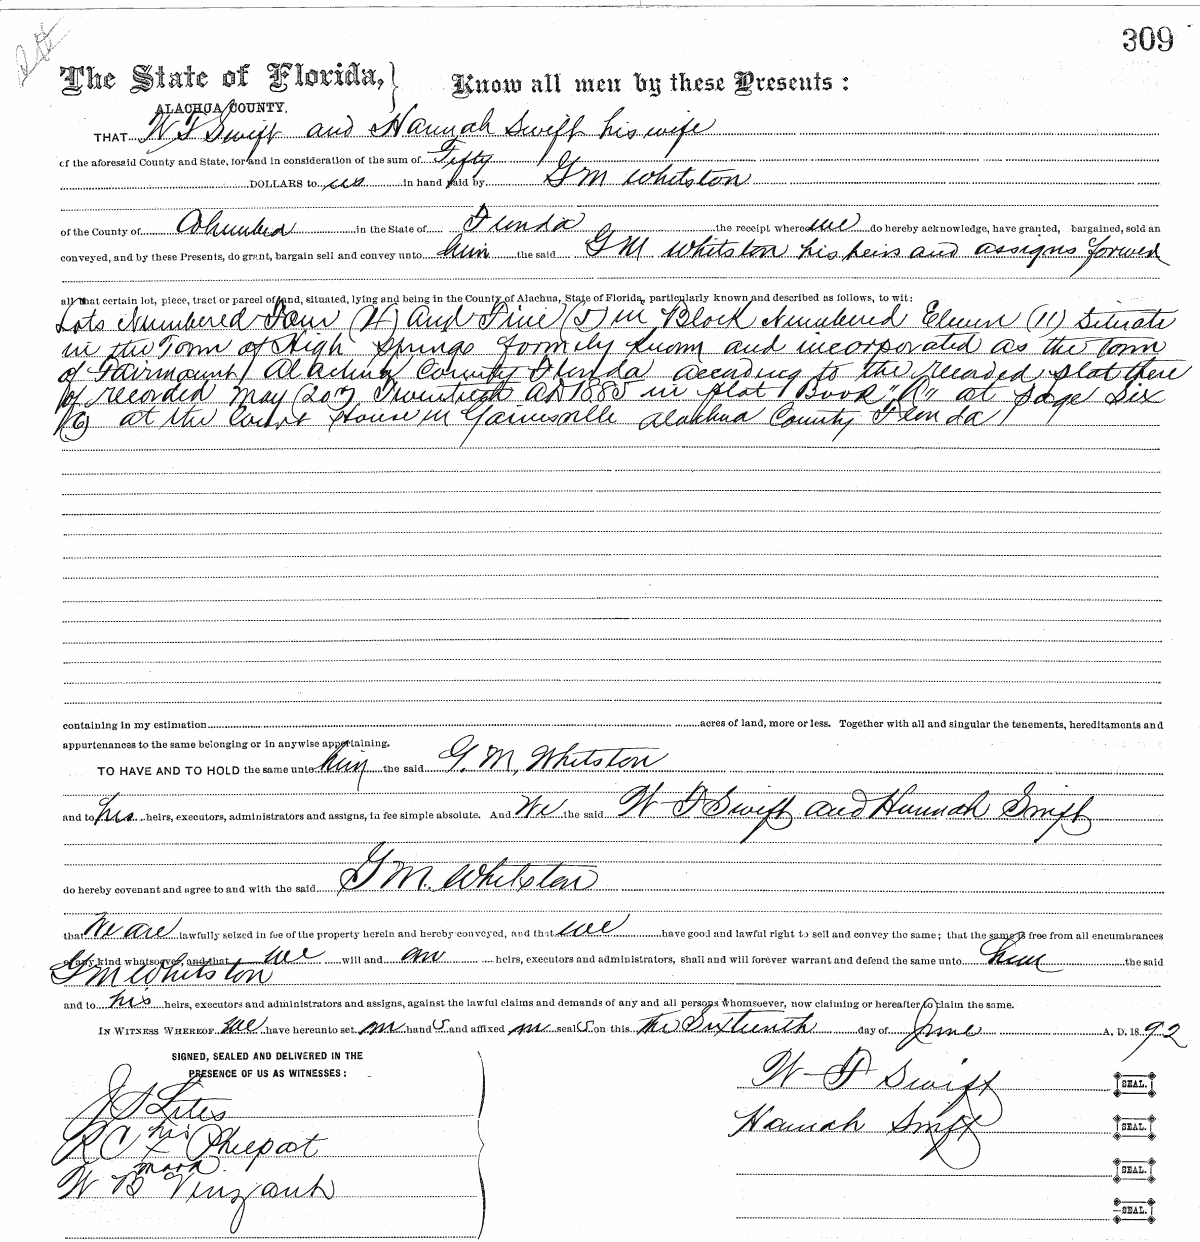 309
The State of Florida,} Know all men by these Presents:
ALACHUA COUNTY.
THAT W T Swift and Hannah Swift his wife
of the aforesaid County and State, for and in consideration of the sum of Fifty
DOLLARS to us in hand paid by G M Whitston
of the County of Columbia in the State of Florida the receipt where we do hereby acknowledge, have granted, bargained, sold an
conveyed, and by these Presents, do grant, bargain sell and convey unto him the said G M Whitston his heirs and assigns forever
all that certain lot, piece, tract or parcel of land, situated, lying and being in the County of Alachua, State of Florida, particularly known and described as follows, to wit:
Lots Numbered Four (4) and Five (5) in Block Numbered Eleven (11) Situate
in the Town of High Springs formerly known and incorporated as the town
of Fairmount Alachua County Florida according to the recorded plat there
of recorded May 20th Twentieth AD 1885 in plat Book "A" at page Six
(6) at the Court House in Gainesville Alachua County Florida
containing in my estimation acres of land, more or less. Together with all and singular the tenements, hereditaments and
appurtenances to the same belonging or in anywise appertaining.
TO HAVE AND TO HOLD the same unto him the said G. M. Whitston
and to his heirs, executors, administrators and assigns, in fee simple absolute. And We the said W T Swift and Hannah Swift
do hereby covenant and agree to and with the said G M. Whitston
that We are lawfully seized in fee of the property herein and hereby conveyed, and that we have good and lawful right to sell and convey the same; that the same is free from all encumbrances
of any kind whatsoever, and that we will and our heirs, executors and administrators, shall and will forever warrant and defend the same unto him the said
G M Whitston
and to his heirs, executors and administrators and assigns, against the lawful claims and demands of any and all persons whomsoever, now claiming or hereafter to claim the same.
IN WITNESS WHEREOF we have hereunto set hands and affixed seals on this the Sixteenth day of June A. D. 1892
SIGNED, SEALED AND DELIVERED IN THE
PRESENCE OF US AS WITNESSES:
W T Swift SEAL.
J S
Hannah Swift SEAL.
R C his x mark
SEAL.
W B Vinzant
SEAL.